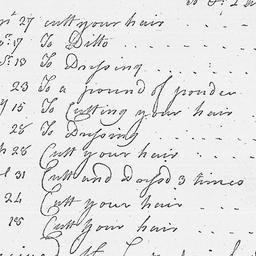 27 cutt your hair
17 To Ditto
13 To Dressing
23 To a pound of powder
15 To Cutting your hair
28 To Dressing
28 Cutt your hair
31 Cutt and Dresd 3 times
24 Cutt your hair
18 Cutt your hair